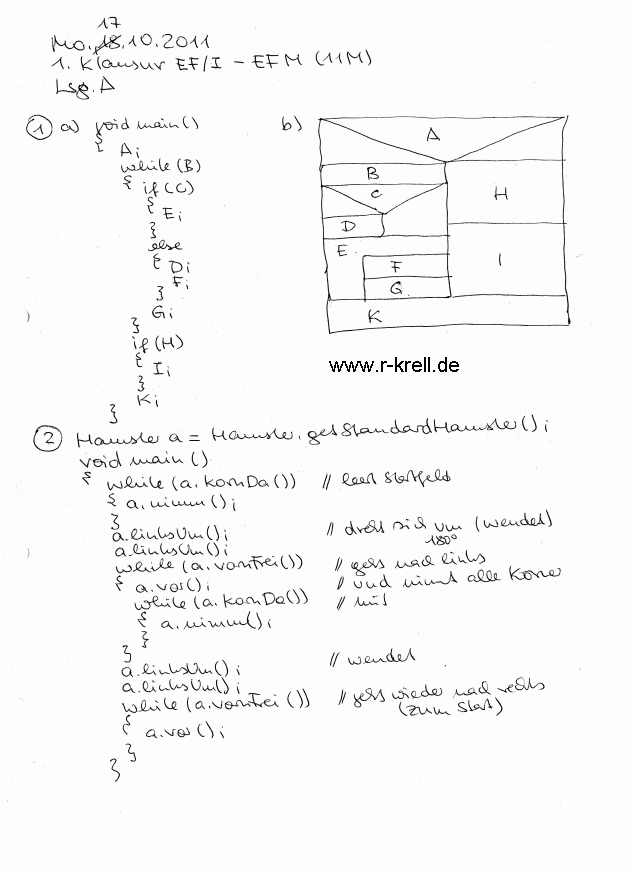 17
Mo. 18.10.2011
1. Klausur EF/I - EFM (11M)
Lsg. A
① a) void main()
{ A;
while (B)
{ if (C)
{
E;
}
else
{ D;
F;
}
G;
}
if (H)
{
I;
}
K;
}
b)
A
B
C
D
E
F
G
H
I
K
www.r-krell.de
② Hamster a = Hamster.getStandardHamster();
void main()
{ while (a.kornDa()) // leert Startfeld
{ a.nimm();
}
a.linksUm(); // dreht sich um (wendet)
180°
a.linksUm();
while (a.vornFrei()) // geht nach links
{ a.vor(); // und nimmt alle Körner
while (a.kornDa()) // mit
{ a.nimm();
}
}
a.linksUm(); // wendet
a.linksUm();
while (a.vornFrei()) // geht wieder nach rechts
(zum Start)
{
a.vor();
}
}